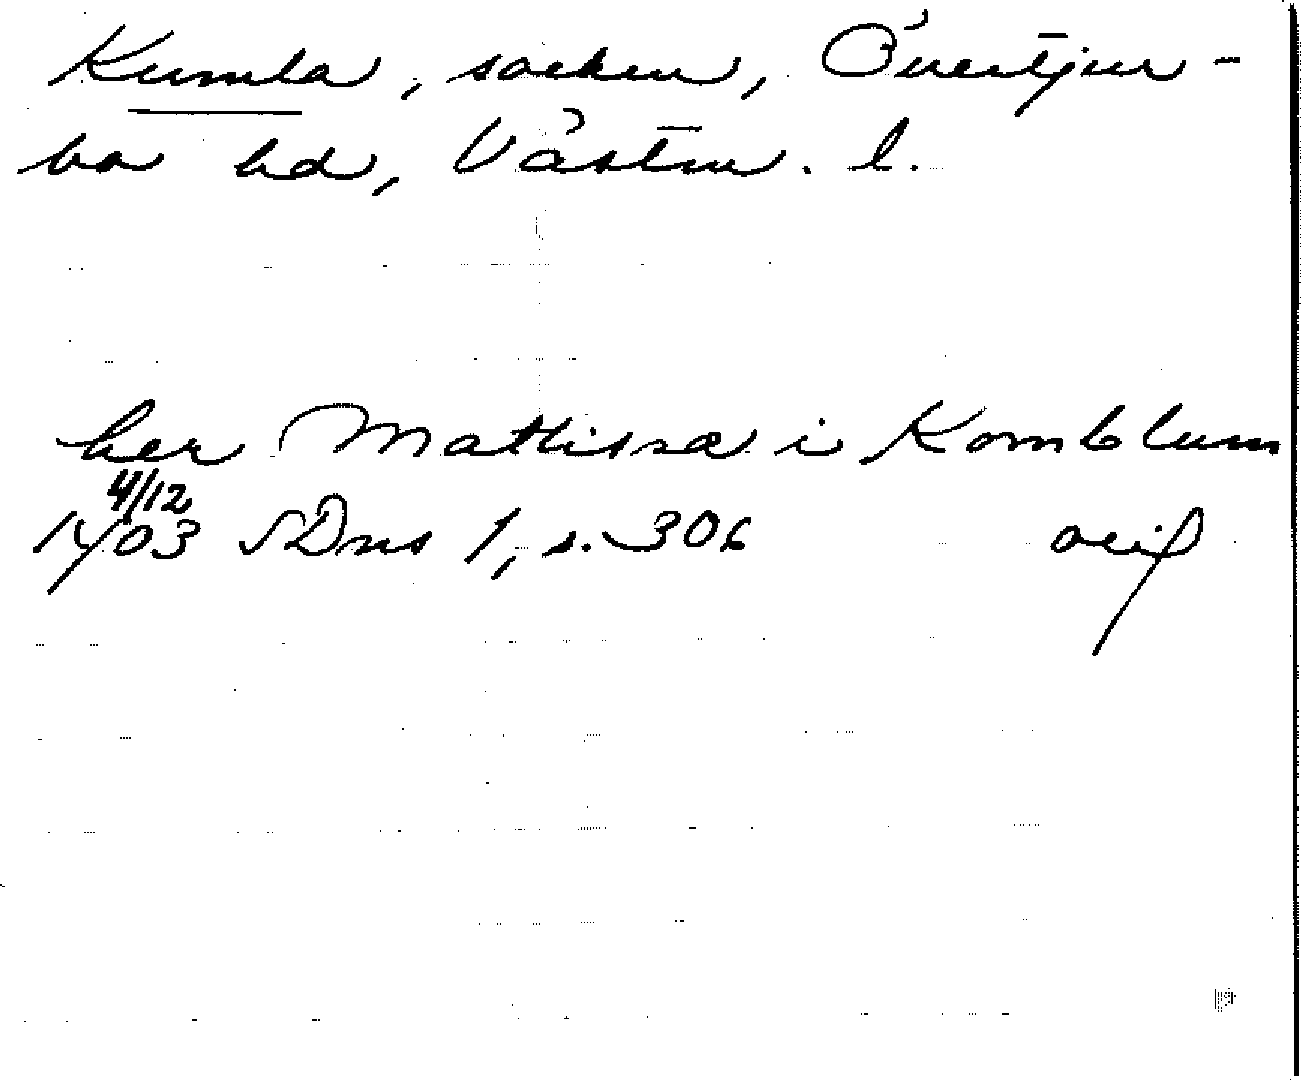 Kumla, socken, Övertjur-
bo hd, Västm. l.
her Mattissa i Komblum
4/12
1403 SDns 1, s. 306 avf